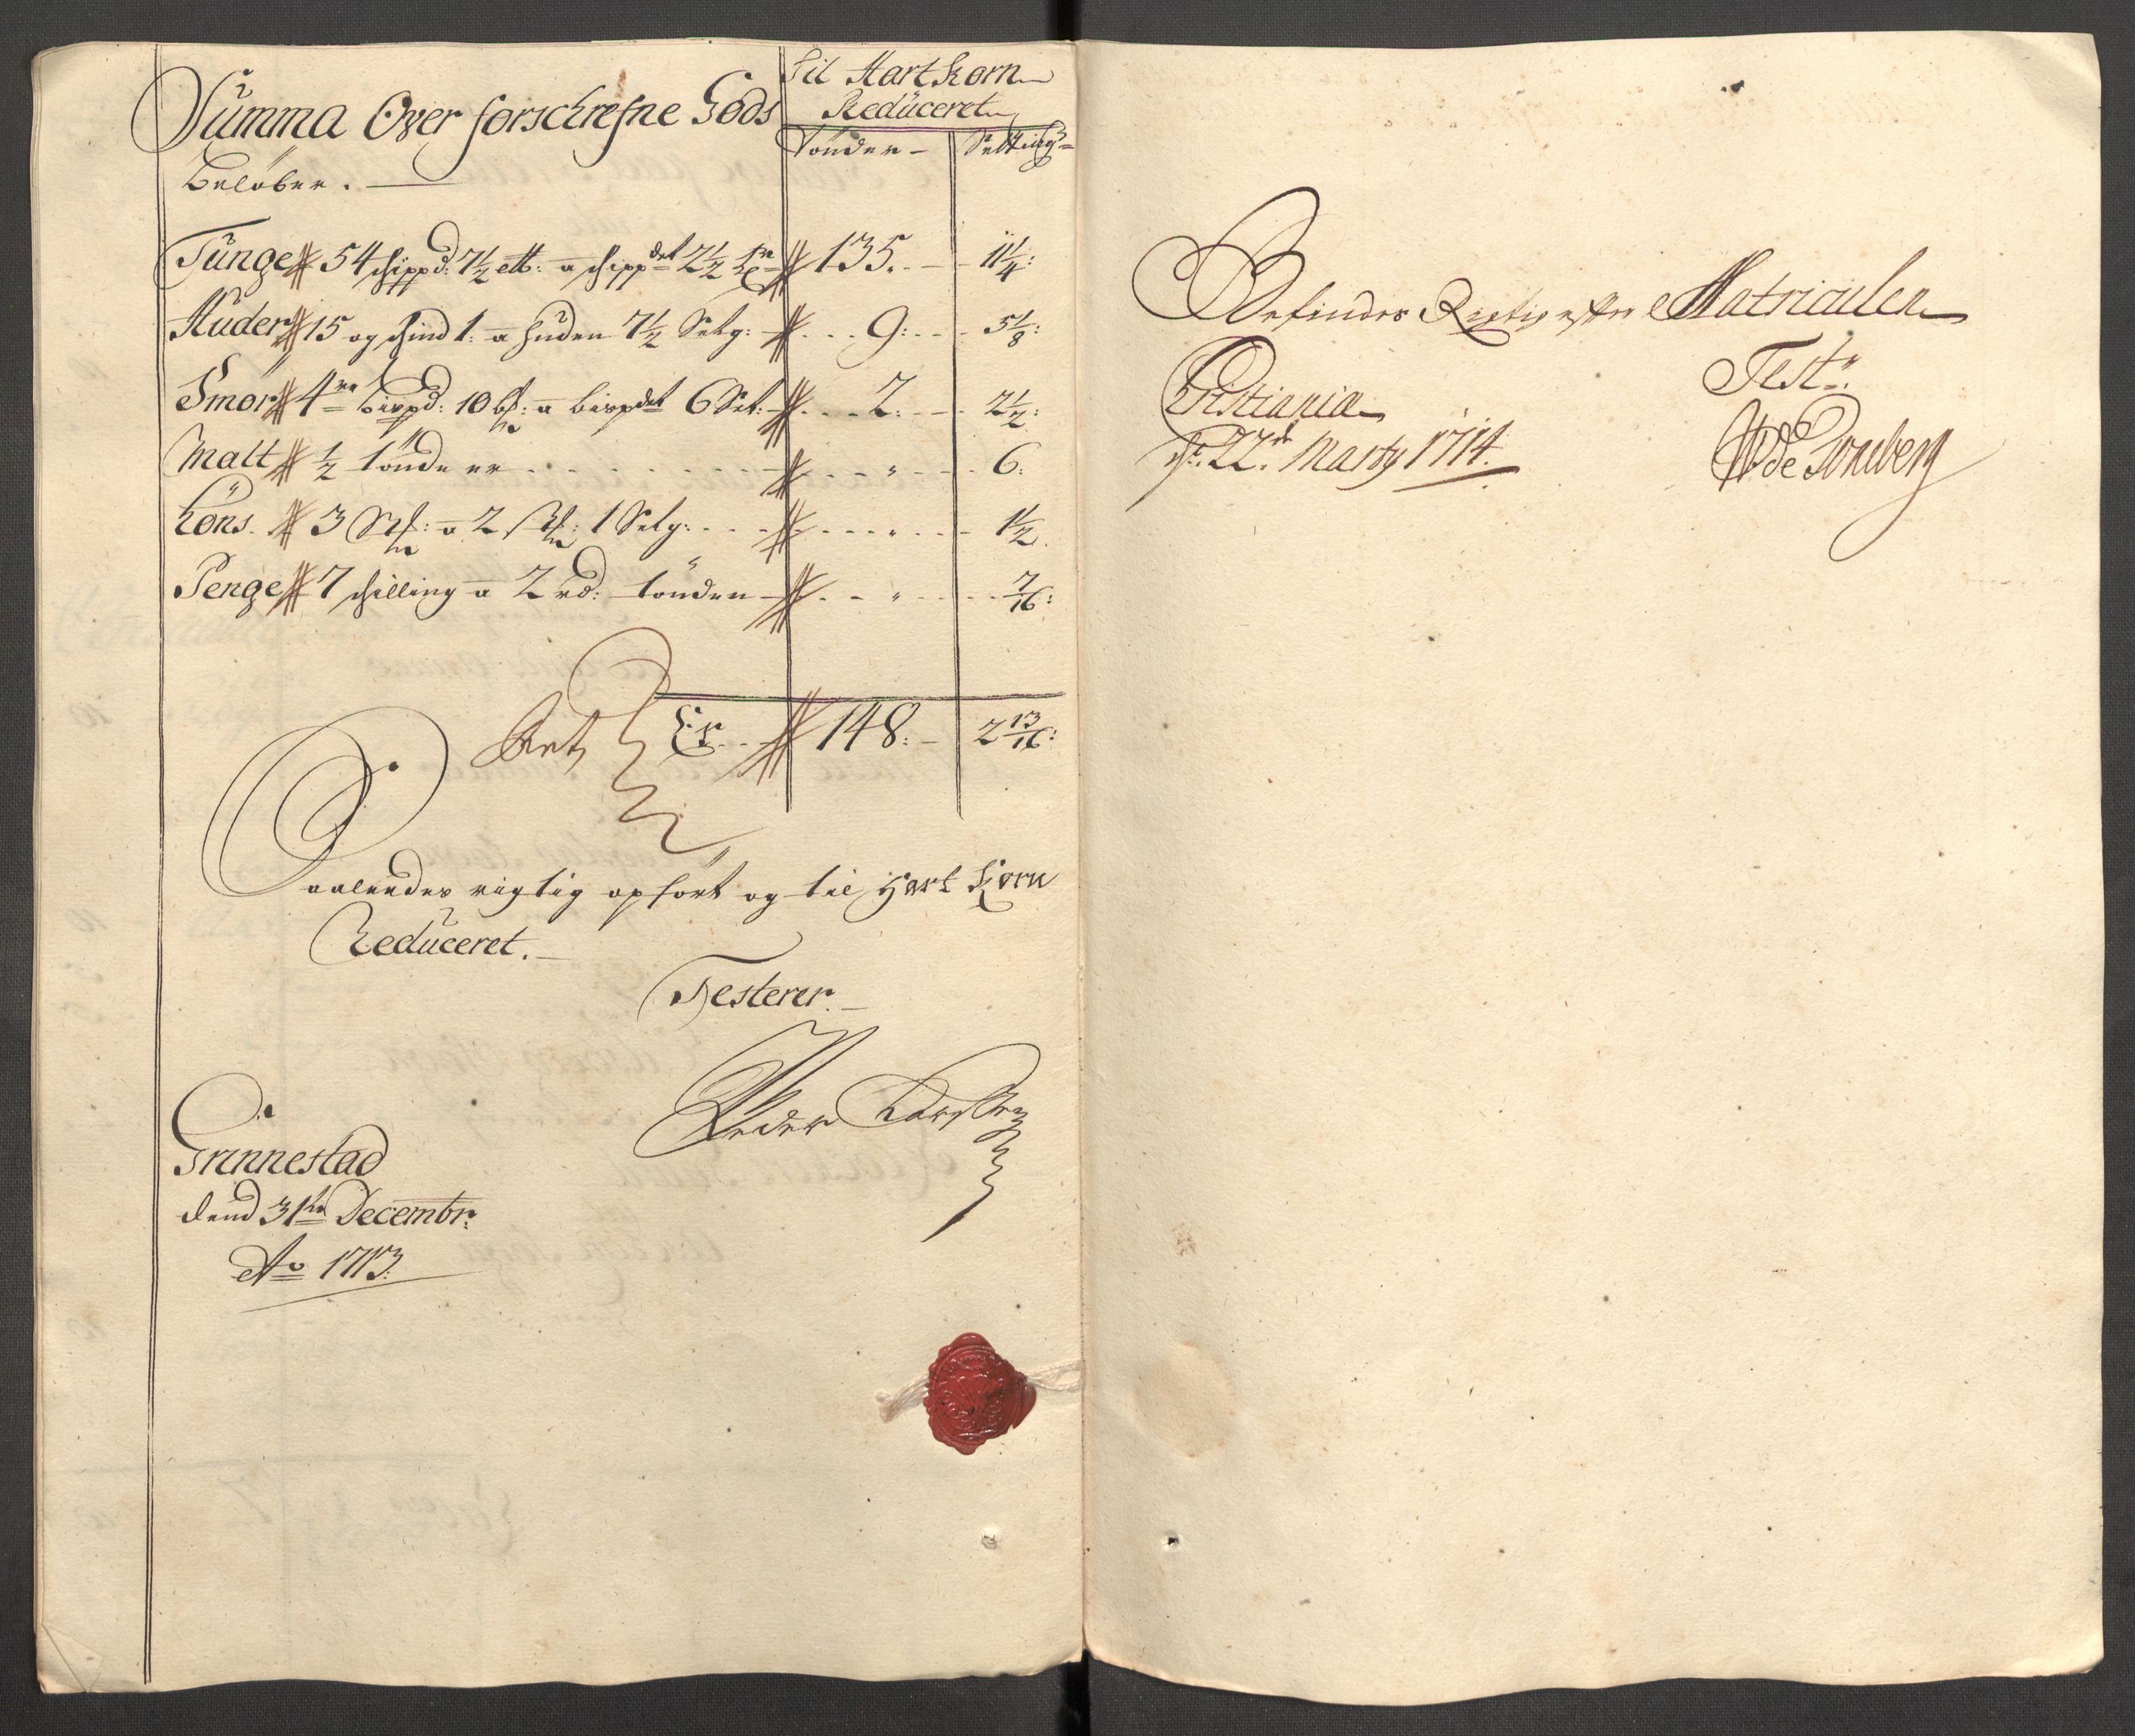 Summa Over forschrefne Gods
Beløber.
Til Hart Korn
Reduceret
Tønder Setting
Tunge 54 schippd: 7½ ett: a schippdet 2½ Tr 135. 11¼:
Huder 15 og schind 1: a huden 7½ Setg: 9: 5⅛:
Smør 4re bispd: 10 bs: a bispdet 6 Set: 2: 2½:
Malt ½ tønde er " 6:
Kons. 3 Sch: a 2 sch: 1 Setg: " 1½.
Penge 7 schilling a 2 rd: tønden " 7/16:
Ret Er 148: 2 13/16:
Saaledes rigtig opført og til Hart Korn
Reduceret.
Testerer
Peder Carssen
Grinnestad
dend 31te Decembr:
Ao 1713:
Befindes Rigtig efter Matriculen
Christiania
Test:
d: 22d Marty 1714.
de Tonsberg